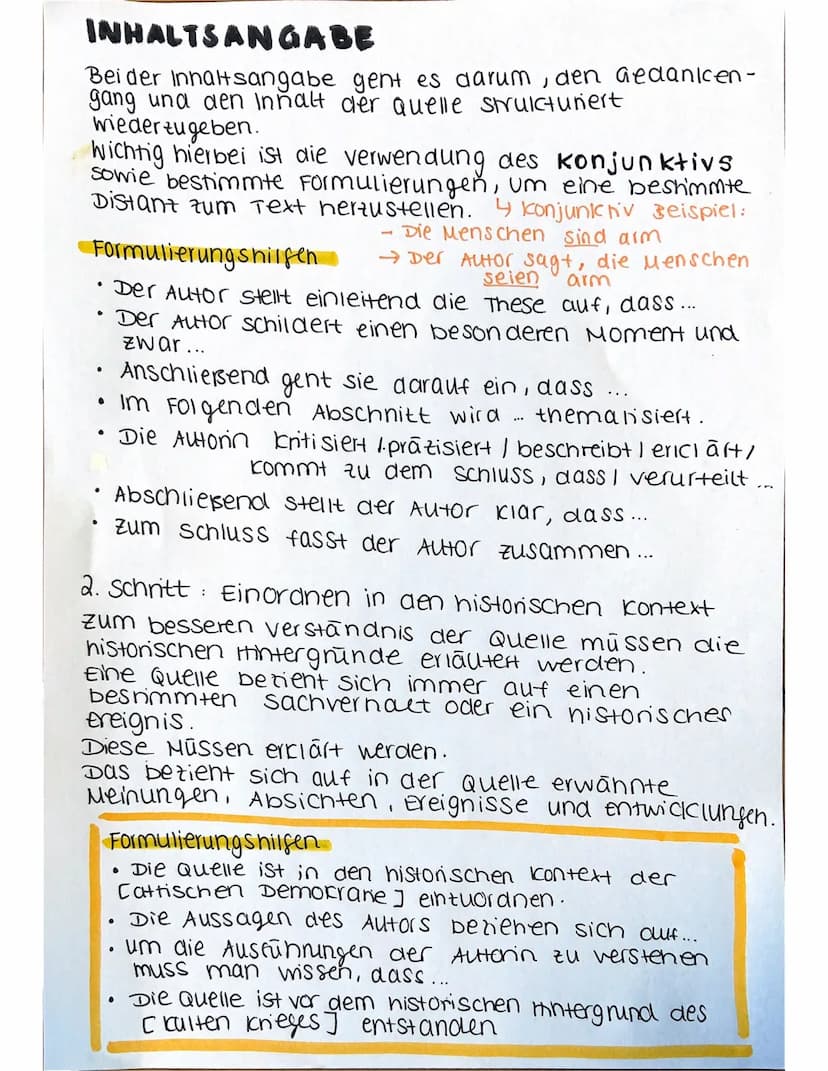 INHALTSANGABE
Bei der Inhaltsangabe geht es darum, den Gedanken-
gang und den Inhalt der Quelle strukturiert
wiederzugeben.
Wichtig hierbei ist die Verwendung des Konjunktivs
sowie bestimmte Formulierungen, um eine bestimmte
Distant zum Text herzustellen. ↳ Konjunktiv Beispiel:
- Die Menschen sind arm
Formulierungshilfen → Der Autor sagt, die Menschen
seien arm
• Der Autor stellt einleitend die These auf, dass...
• Der Autor schildert einen besonderen Moment und
zwar...
• Anschließend geht sie darauf ein, dass ...
• Im Folgenden Abschnitt wird ... thematisiert.
• Die Autorin kritisiert / präzisiert / beschreibt / erklärt /
kommt zu dem Schluss, dass / verurteilt ...
• Abschließend stellt der Autor klar, dass...
• Zum Schluss fasst der Autor zusammen ...
2. Schritt : Einordnen in den historischen Kontext
Zum besseren Verständnis der Quelle müssen die
historischen Hintergründe erläutert werden.
Eine Quelle bezieht sich immer auf einen
bestimmten Sachverhalt oder ein historisches
Ereignis.
Diese Müssen erklärt werden.
Das bezieht sich auf in der Quelle erwähnte
Meinungen, Absichten, Ereignisse und Entwicklungen.
Formulierungshilfen
• Die Quelle ist in den historischen Kontext der
[attischen Demokratie] einzuordnen.
• Die Aussagen des Autors beziehen sich auf...
• Um die Ausführungen der Autorin zu verstehen
muss man wissen, dass...
• Die Quelle ist vor dem historischen Hintergrund des
[Kalten Krieges] entstanden